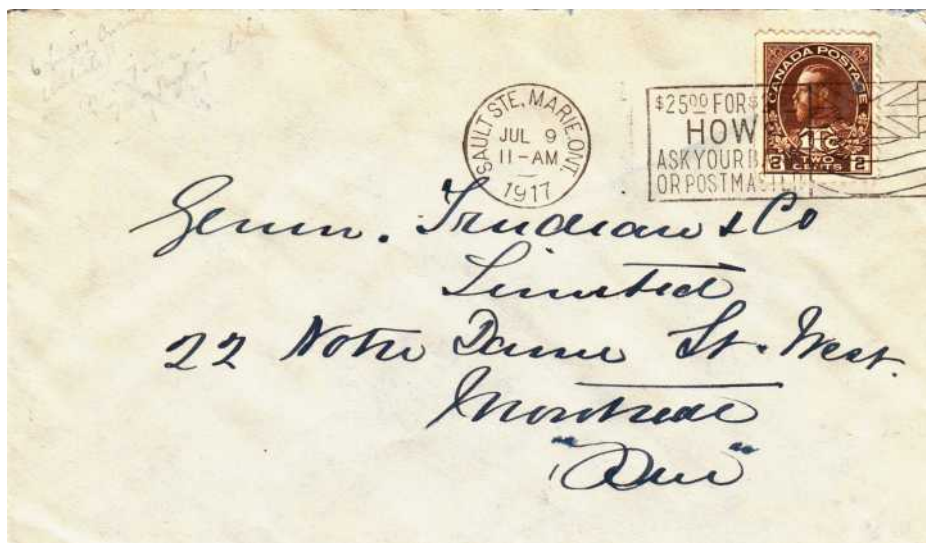 SAULT STE. MARIE, ONT.
JUL 9
11-AM
1917
$25.00 FOR $
HOW
ASK YOUR B
OR POSTMASTER
CANADA POSTAGE
1TC
2 TWO CENTS 2
Trudeau & Co
Limited
22 Notre Dame St. West.
Montreal
"Que"